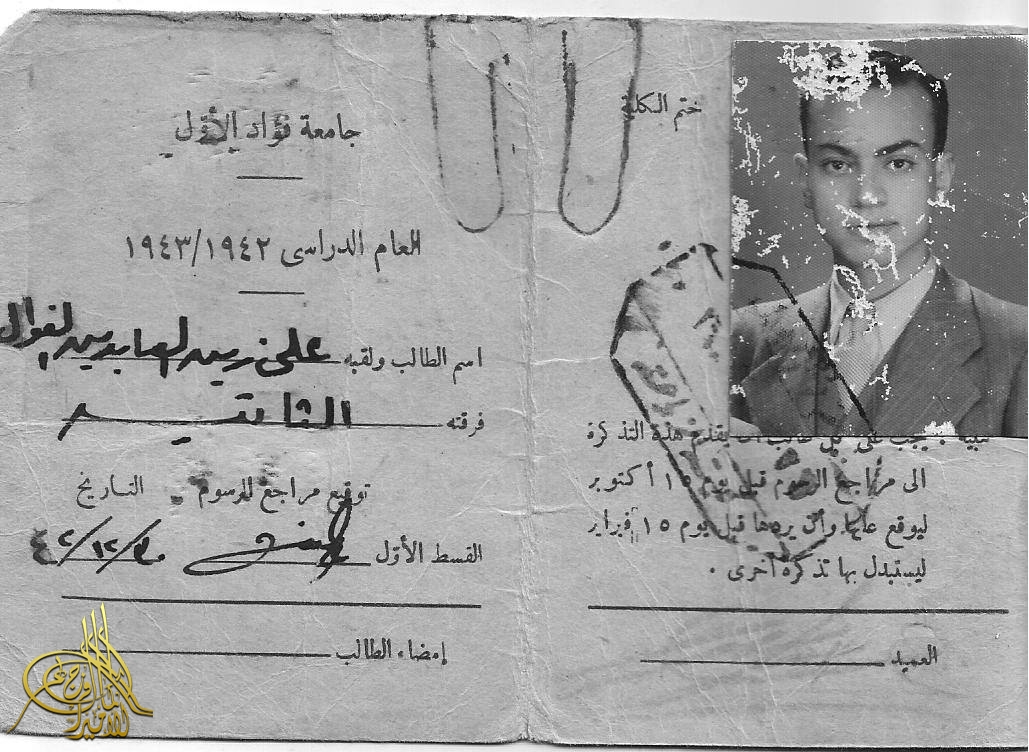 ختم الكلية
تنبيه : يجب على كل طالب أن يقدم هذه التذكرة
الى مراجع الرسوم قبل يوم ١٥ أكتوبر
ليوقع عليها وأن يردها قبل يوم ١٥ فبراير
ليستبدل بها تذكرة أخرى .
العميد
جامعة فؤاد الأول
العام الدراسى ١٩٤٢/١٩٤٣
اسم الطالب ولقبه على زين العابدين الفوال
فرقته الثانية
توقيع مراجع الرسوم التاريخ
القسط الأول
إمضاء الطالب